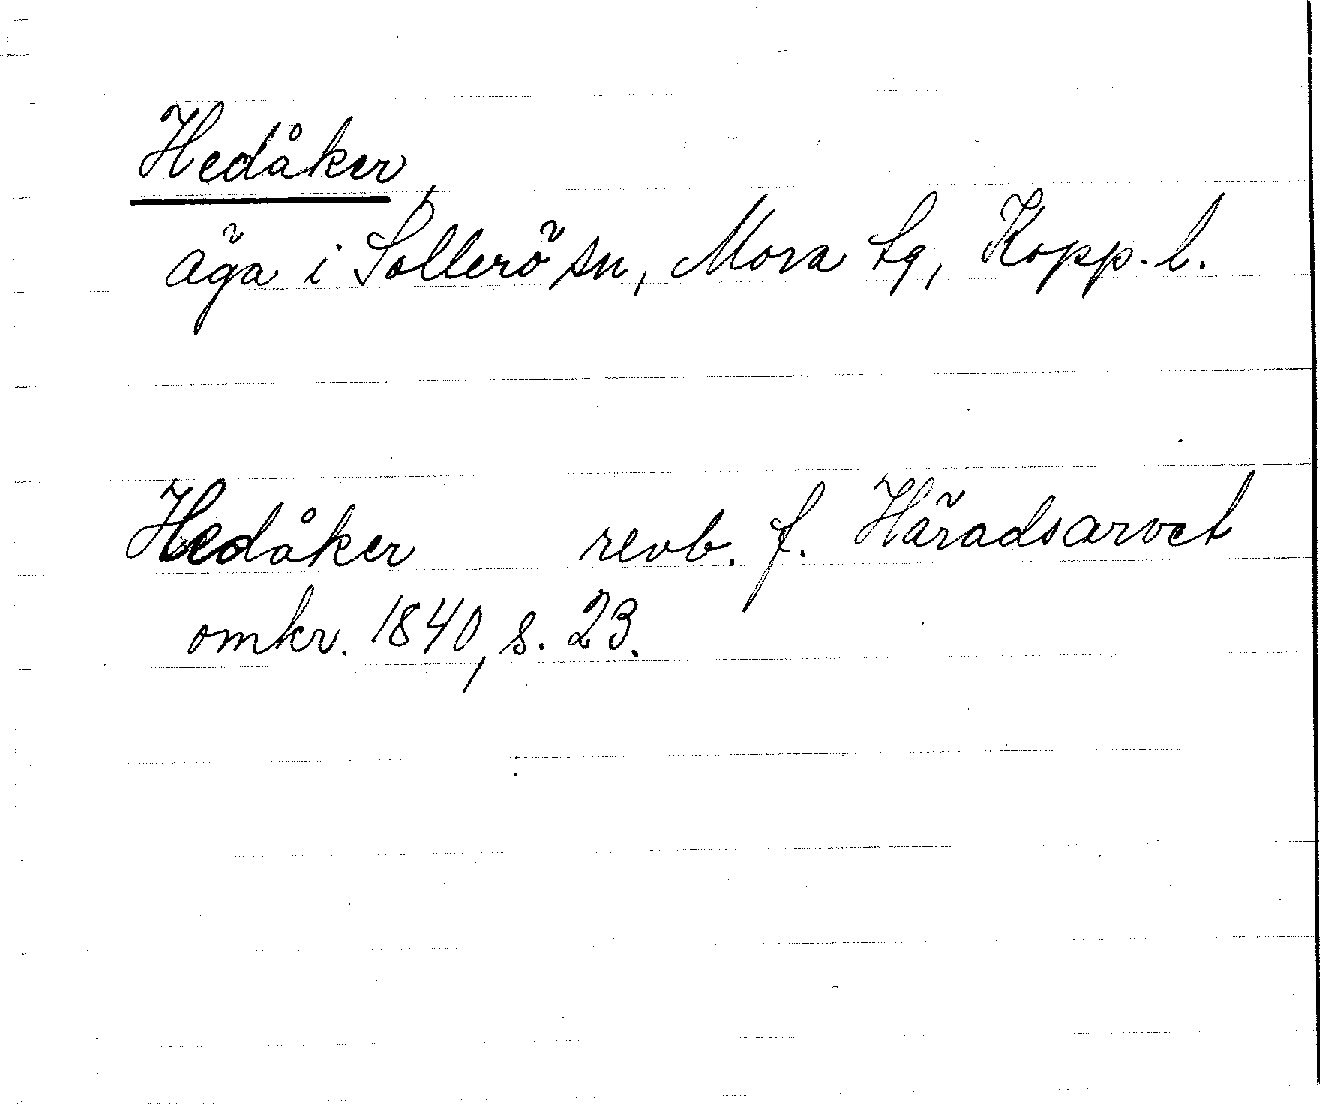 Hedåker,
äga i Sollerö sn, Mora tg, Kopp. l.
Hedåker revb. f. Häradsarvet
omkr. 1840, s. 23.